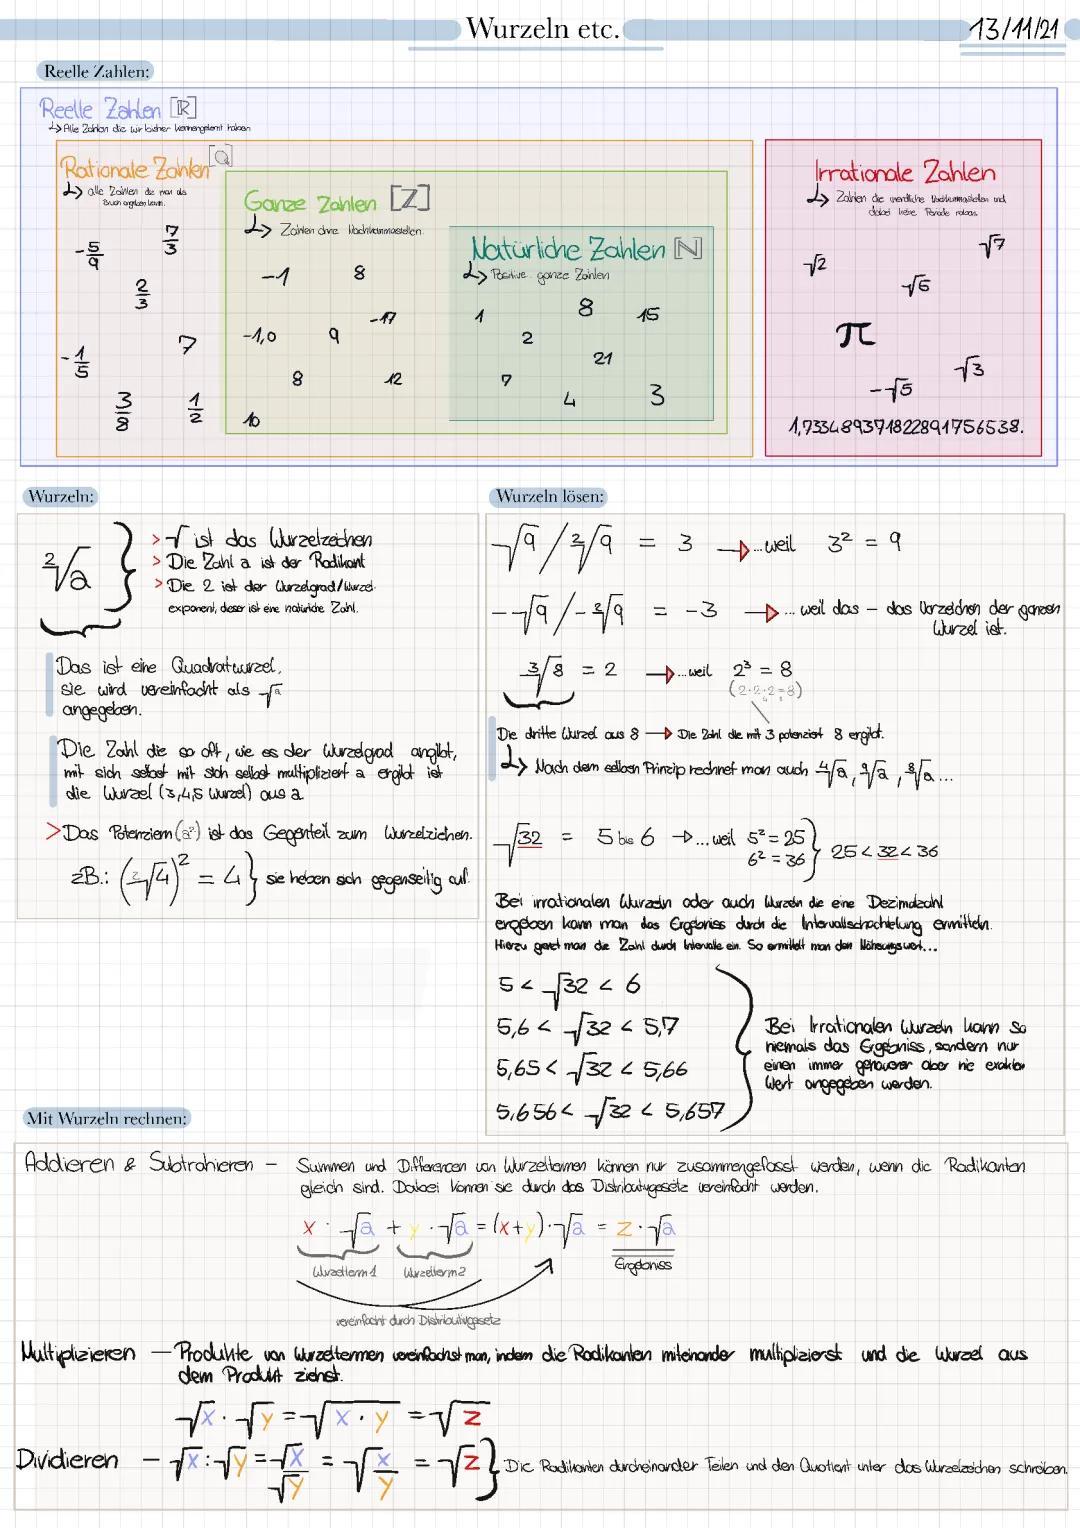 Wurzeln etc.
13/11/21
Reelle Zahlen:
Reelle Zahlen [ℝ]
↳ Alle Zahlen die wir bisher kennengelernt haben
Rationale Zahlen [ℚ]
↳ alle Zahlen die man als
Bruch angeben kann.
-5/9 7/3
2/3
7
-1/5
3/8 1/2
Ganze Zahlen [ℤ]
↳ Zahlen ohne Nachkommastellen.
-1 8
-17
-1,0 9
8 12
10
Natürliche Zahlen [ℕ]
↳ Positive ganze Zahlen
1 8 15
2
21
7
4 3
Irrationale Zahlen
↳ Zahlen die unendliche Nachkommastellen und
dabei keine Periode haben.
√7
√2
√6
π
√3
-√5
1,733489371822891756538.
Wurzeln:
²√a
> √ ist das Wurzelzeichen
> Die Zahl a ist der Radikant
> Die 2 ist der Wurzelgrad/Wurzel-
exponent, dieser ist eine natürliche Zahl.
Das ist eine Quadratwurzel,
sie wird vereinfacht als √a
angegeben.
Die Zahl die so oft, wie es der Wurzelgrad angibt,
mit sich selbst mit sich selbst multipliziert a ergibt ist
die Wurzel (3,4,5 Wurzel) aus a
> Das Potenziern (a²) ist das Gegenteil zum Wurzelziehen.
zB.: (²√4)² = 4 } sie heben sich gegenseitig auf.
Wurzeln lösen:
√9 / ²√9 = 3 → ...weil 3² = 9
-√9 / -²√9 = -3 → ... weil das - das Vorzeichen der ganzen
Wurzel ist.
³√8 = 2 → ...weil 2³ = 8
(2·2·2=8)
Die dritte Wurzel aus 8 → Die Zahl die mit 3 potenziert 8 ergibt.
↳ Nach dem selben Prinzip rechnet man auch ⁴√a, ⁹√a, ⁸√a...
√32 = 5 bis 6 → ...weil 5² = 25
6² = 36 } 25 < 32 < 36
Bei irrationalen Wurzeln oder auch Wurzeln die eine Dezimalzahl
ergeben kann man das Ergebniss durch die Intervallschachtelung ermitteln.
Hierzu genzt man die Zahl durch Intervalle ein. So ermittelt man den Näherungswert...
5 < √32 < 6
5,6 < √32 < 5,7
5,65 < √32 < 5,66
5,656 < √32 < 5,657
Bei Irrationalen Wurzeln kann so
niemals das Ergebniss, sondern nur
einen immer genauerer aber nie exakter
Wert angegeben werden.
Mit Wurzeln rechnen:
Addieren & Subtrahieren - Summen und Differenzen von Wurzeltermen können nur zusammengefasst werden, wenn die Radikanten
gleich sind. Dabei können sie durch das Distributivgesetz vereinfacht werden.
x · √a + y · √a = (x+y)·√a = z·√a
Wurzelterm 1 Wurzelterm 2 Ergebniss
vereinfacht durch Distributivgesetz
Multiplizieren - Produkte von Wurzeltermen vereinfachst man, indem die Radikanten miteinander multiplizierst und die Wurzel aus
dem Produkt ziehst.
√x · √y = √x · y = √z
Dividieren - √x : √y = √x/√y = √x/y = √z } Die Radikanten durcheinander Teilen und den Quotient unter das Wurzelzeichen schreiben.